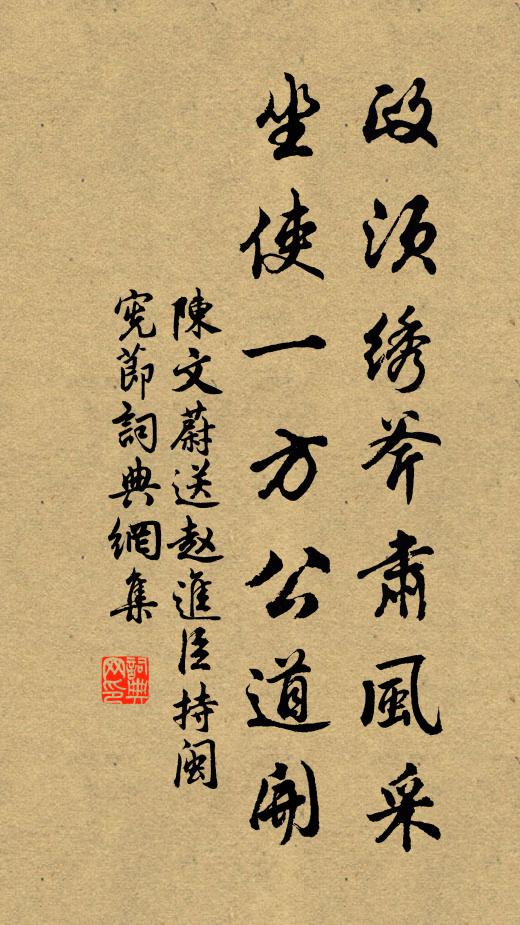 政须綉斧肅風采
坐使一方公道開
陳文蔚送赵進臣持闽
宪節詞典網集
詞典网印